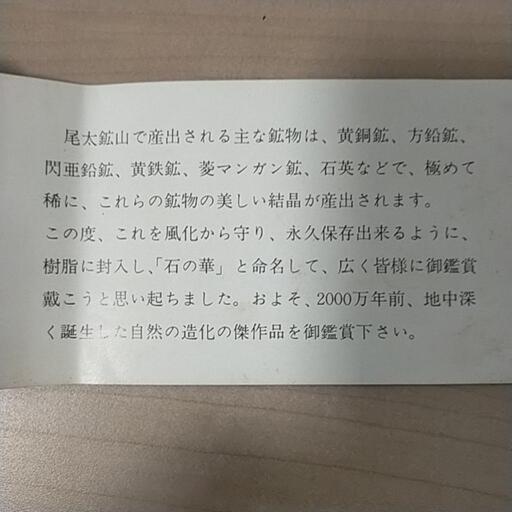 尾太鉱山で産出される主な鉱物は、黄銅鉱、方鉛鉱、
閃亜鉛鉱、黄鉄鉱、菱マンガン鉱、石英などで、極めて
稀に、これらの鉱物の美しい結晶が産出されます。
この度、これを風化から守り、永久保存出来るように、
樹脂に封入し、「石の華」と命名して、広く皆様に御鑑賞
戴こうと思い起ちました。およそ、2000万年前、地中深
く誕生した自然の造化の傑作品を御鑑賞下さい。